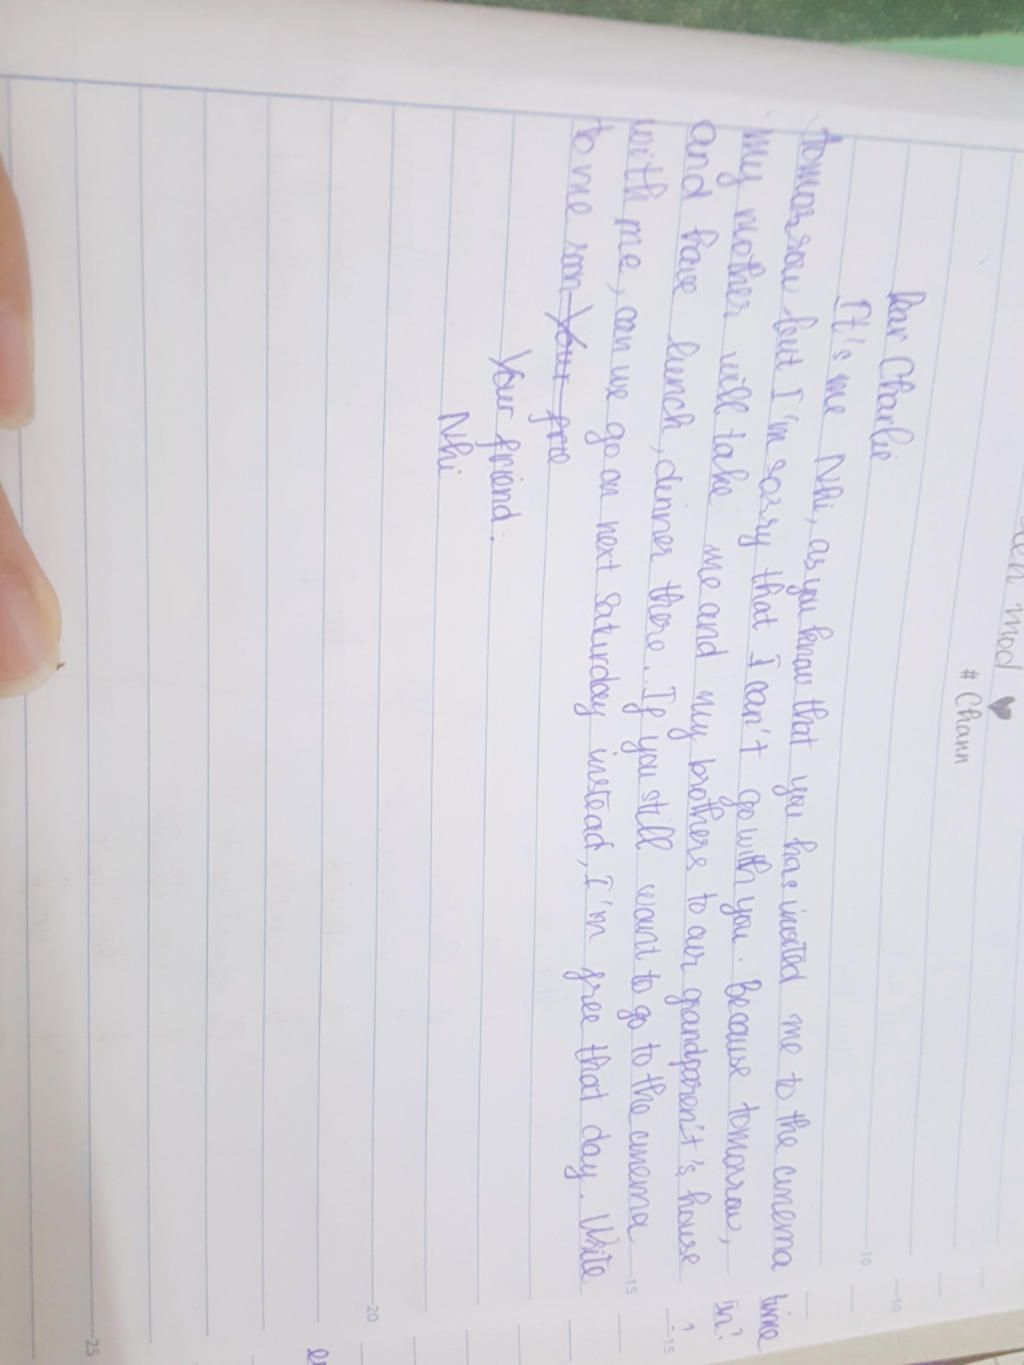 mod ♥
# Chann
Dear Charlie
It's me Nhi, as you know that you has invited me to the cinema
tomorrow but I'm sorry that I can't go with you. Because tomorrow,
my mother will take me and my brothers to our grandparen't's house
and have lunch, dinner there. If you still want to go to the cinema
with me, can we go on next Saturday instead, I'm free that day. Write
to me soon Your frie
Your friend.
Nhi
10
15
20
25
10
15
time